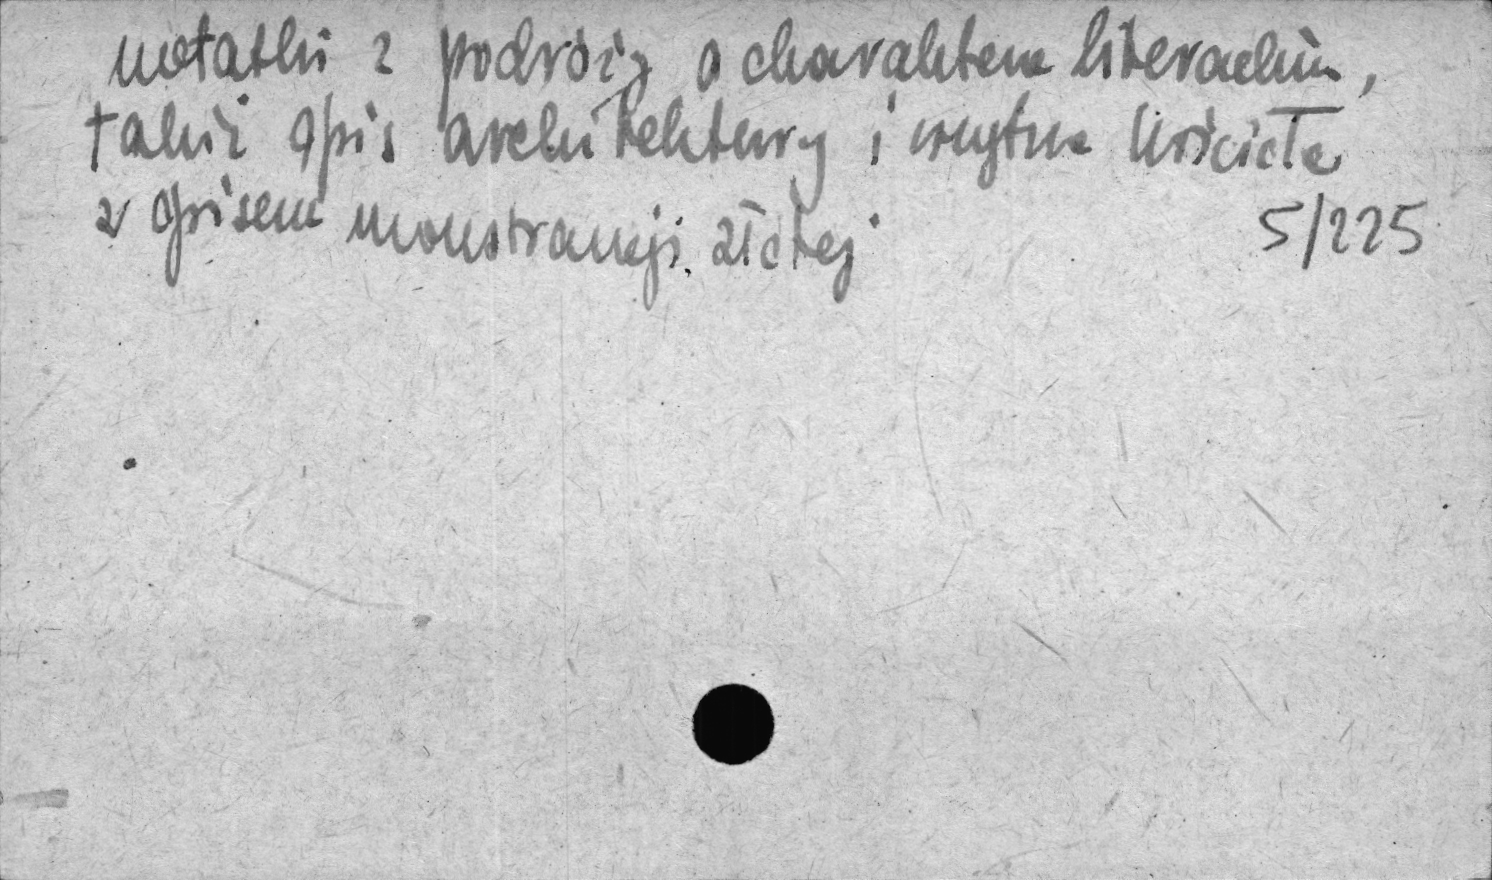 notatki z podróży o charakterze literackim,
także opis architektury i wnętrza kościoła
z opisem monstrancji złotej
5/225